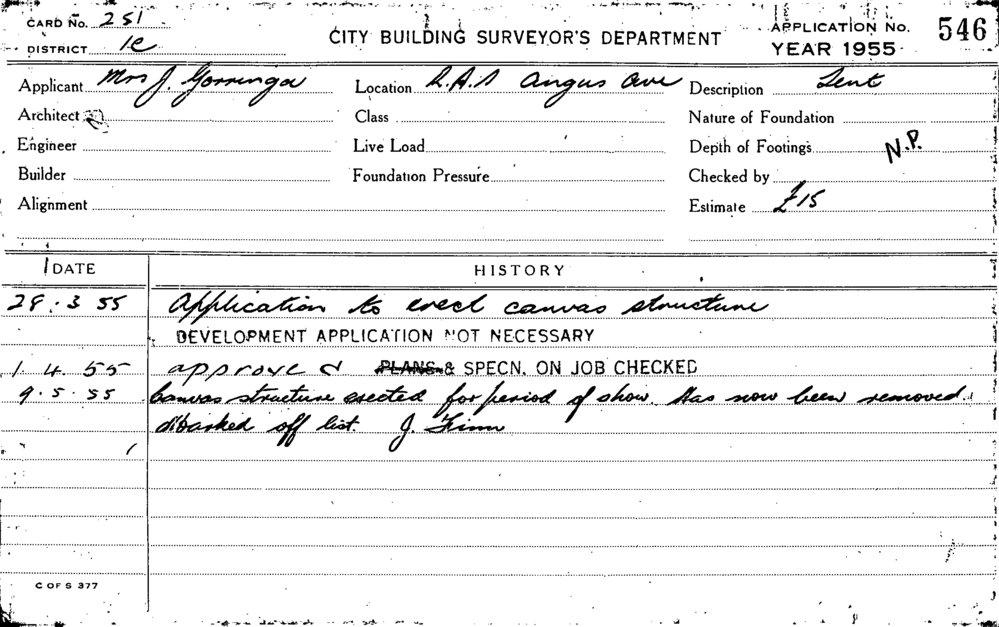 CARD No. 251
DISTRICT 1C
CITY BUILDING SURVEYOR'S DEPARTMENT
APPLICATION No. 546
YEAR 1955
Applicant Mrs J. Gorringa Location R.A.S Angus Ave Description Tent
Architect Class Nature of Foundation
Engineer Live Load Depth of Footings N.P.
Builder Foundation Pressure Checked by
Alignment Estimate £15
DATE HISTORY
28.3 55 Application to erect canvas structure
DEVELOPMENT APPLICATION NOT NECESSARY
1 4. 55 approved PLANS & SPECN. ON JOB CHECKED
9.5.55 Canvas structure erected for period of show. Has now been removed.
Marked off list. J.
C OF S 377